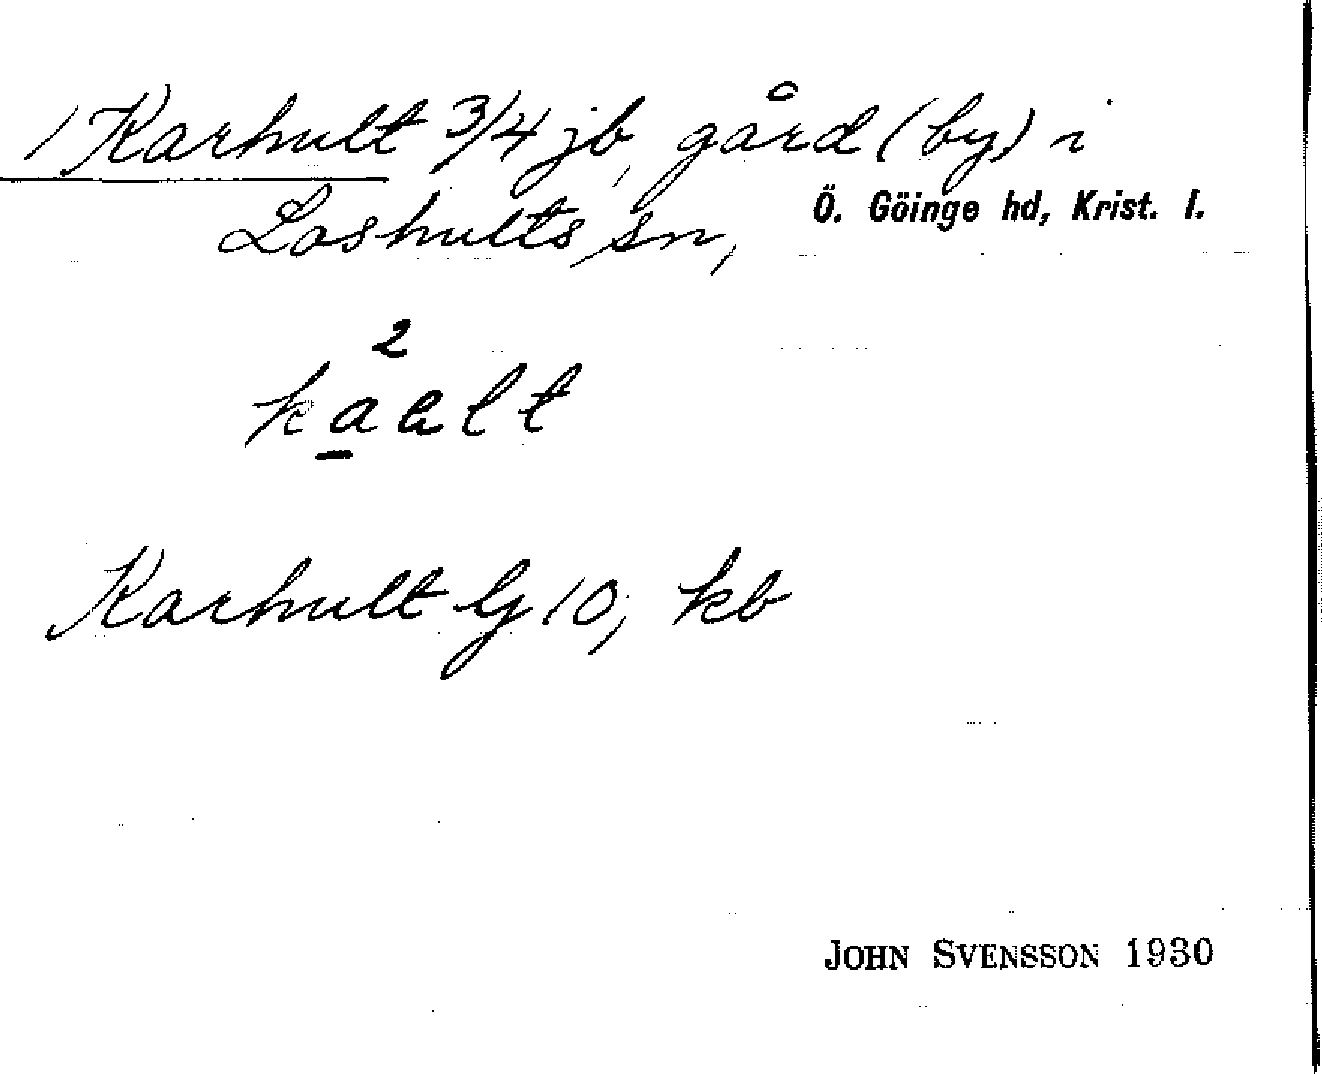 1 Karhult 3/4 jb, gård (by) i
Loshults sn, Ö. Göinge hd, Krist. l.
2
kaalt
Karhult G 10, kb
JOHN SVENSSON 1930